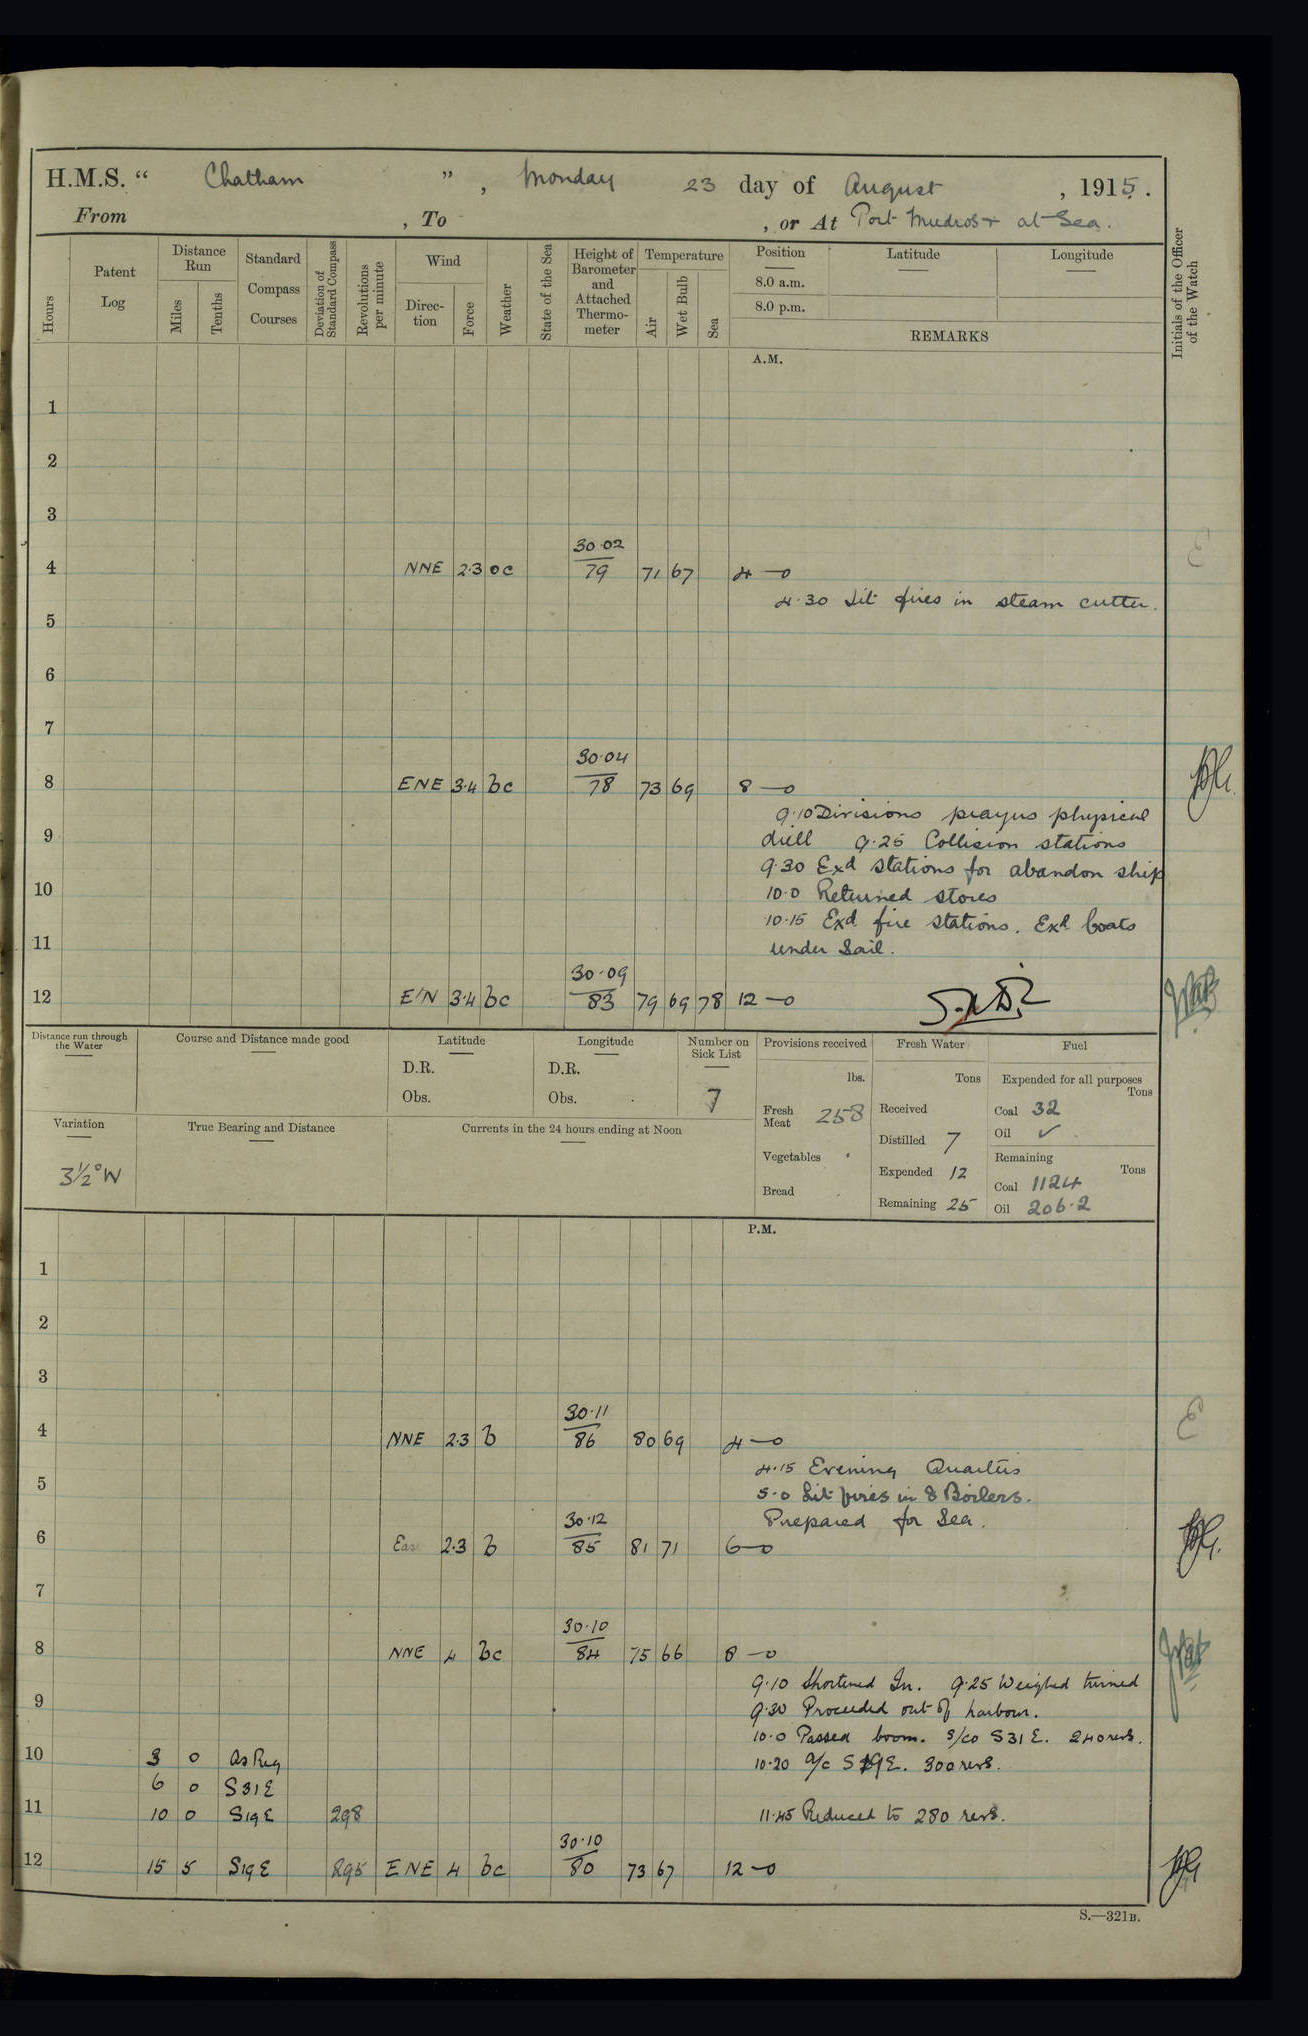 H.M.S. “ Chatham ” , Monday 23 day of August , 1915.
From , To , or At Port Mudros + at Sea.
Hours
Patent Log
Distance Run
Miles
Tenths
Standard Compass Courses
Deviation of Standard Compass
Revolutions per minute
Wind
Direc-tion
Force
Weather
State of the Sea
Height of Barometer and Attached Thermo-meter
Temperature
Air
Wet Bulb
Sea
Position
8.0 a.m.
8.0 p.m.
Latitude
Longitude
REMARKS
Initials of the Officer of the Watch
A.M.
1
2
3
30.02
4 NNE 2.3 oc 79 71 67 4 —o
4.30 Lit fires in steam cutter.
5
6
7
30.04
8 ENE 3.4 bc 78 73 69 8 —o
9.10 Divisions prayers physical
9
drill 9.25 Collision stations
9.30 Exd stations for abandon ship
10
10.0 Returned stores
10.15 Exd fire stations. Exd boats
11
under Sail.
30.09
12 E/N 3.4 bc 83 79 69 78 12 —o
Distance run through the Water
Course and Distance made good
Latitude
D.R.
Obs.
Longitude
D.R.
Obs.
Number on Sick List
7
Provisions received
lbs.
Fresh Meat 258
Vegetables
Bread
Fresh Water
Tons
Received
Distilled 7
Expended 12
Remaining 25
Fuel
Expended for all purposes
Tons
Coal 32
Oil ✓
Remaining
Tons
Coal 1124
Oil 206.2
Variation
3½° W
True Bearing and Distance
Currents in the 24 hours ending at Noon
P.M.
1
2
3
30.11
4 NNE 2.3 b 86 80 69 4 —o
4.15 Evening Quarters
5
5.0 Lit fires in 8 Boilers.
30.12 Prepared for Sea.
6 Eas 2.3 b 85 81 71 6 —o
7
30.10
8 NNE 4 bc 84 75 66 8 —o
9.10 Shortened In. 9.25 Weighed turned
9
9.30 Proceeded out of harbour.
10.0 Passed boom. s/co S31E. 240 revs.
10 3 0 As Req
10.20 a/c S19E. 300 revs.
6 0 S31E
11 10 0 S19E 298
11.45 Reduced to 280 revs.
30.10
12 15 5 S19E 295 ENE 4 bc 80 73 67 12 —o
S.—321B.